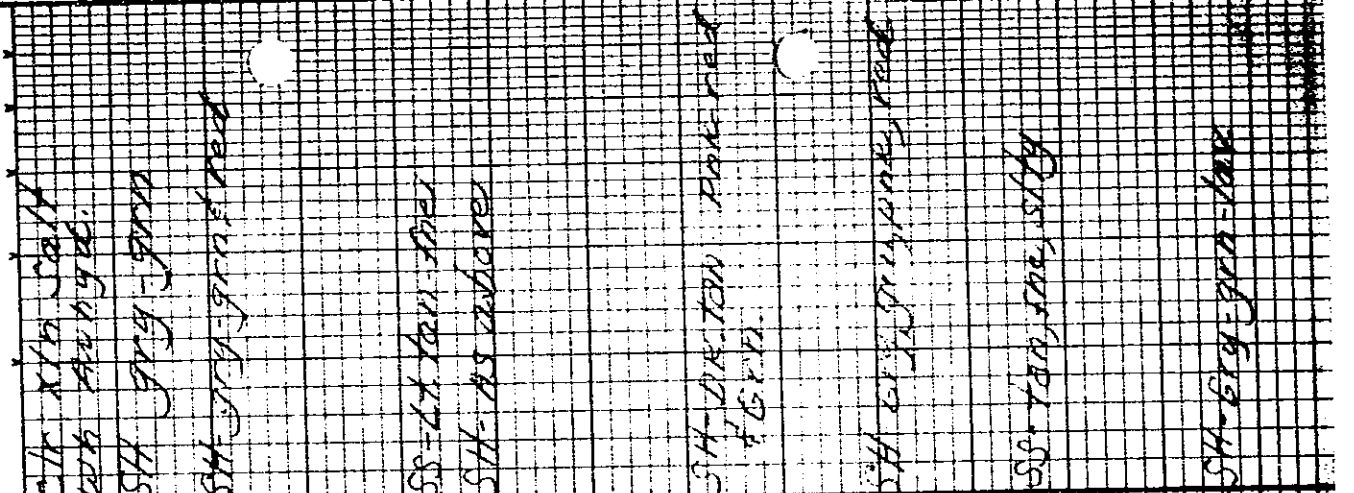 clr xln Salt
wh Anhyd.
SH gry-grn
SH-gry-grn & red
SS-Lt tan-fne
SH-As above
SH-DK. TAN Pnk. red
& Grn.
SH Grn, pnk, red
SS-Tan, fne, slty
SH-Gry-grn-lav